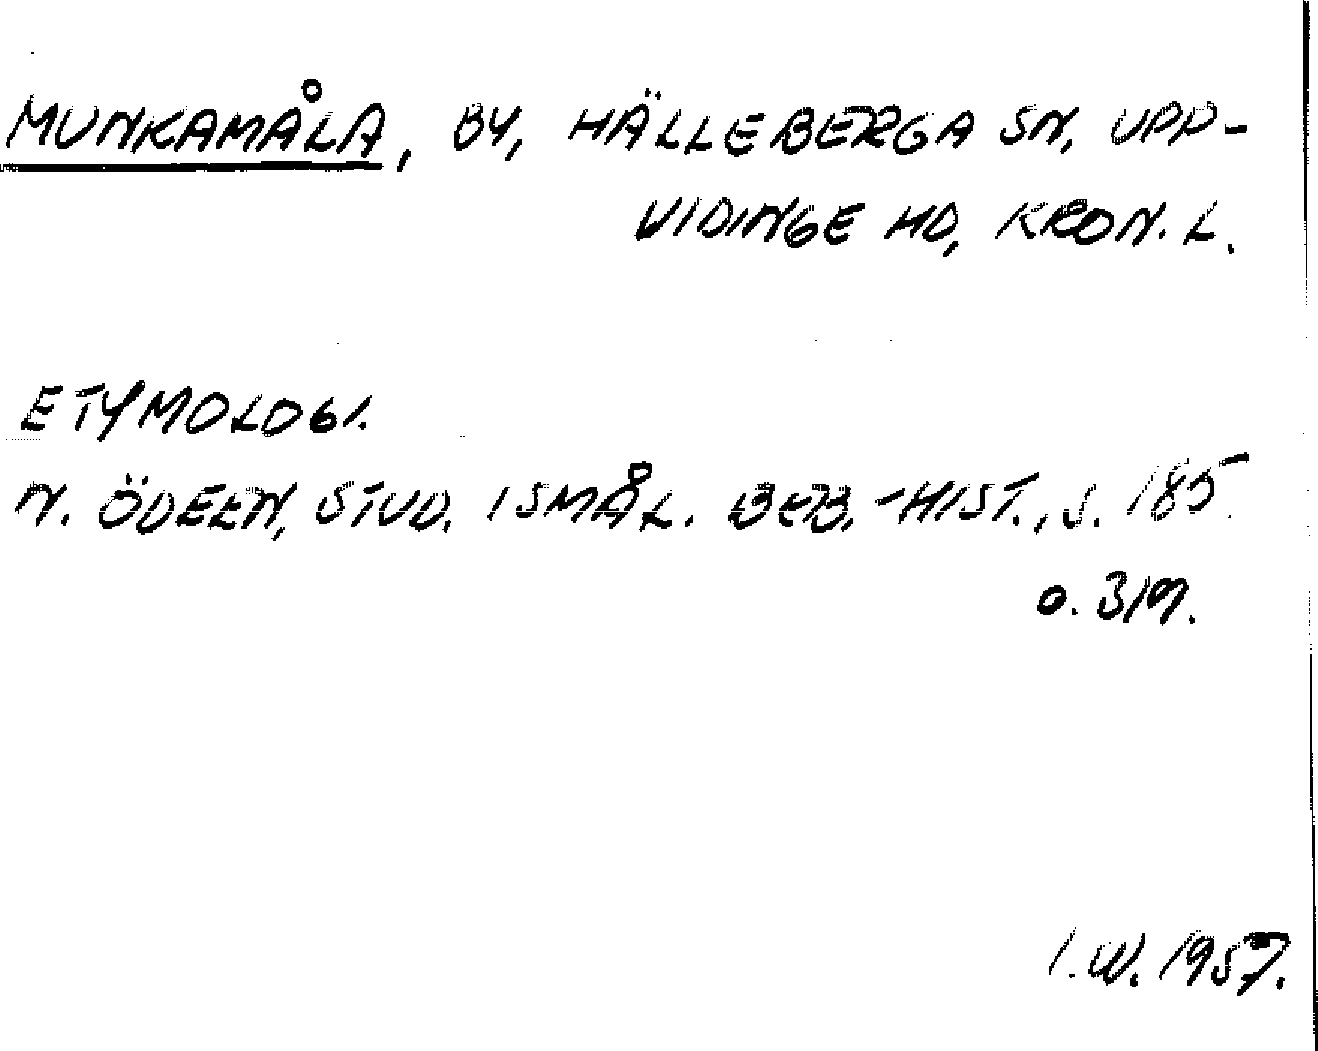 MUNKAMÅLA, BY, HÄLLEBERGA SN, UPP-
VIDINGE HD, KRON. L.
ETYMOLOGI.
N. ÖDEEN, STUD. I SMÅL. BEB.-HIST., S. 185
o. 319.
I.W. 1957.